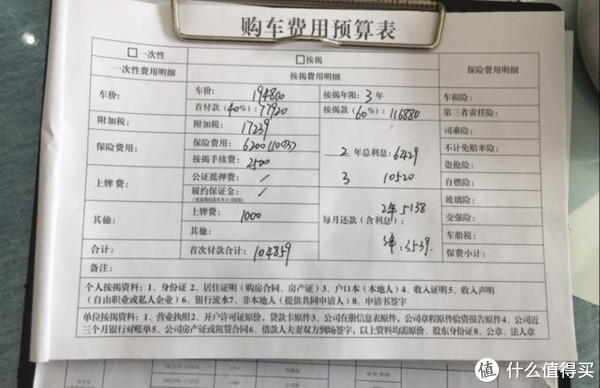 购车费用预算表
□一次性 □按揭 保险费用明细
一次性费用明细 按揭费用明细
车价: 车价: 194800 按揭年限: 3 年 车损险:
首付款 (40%): 77920 按揭款 (60%): 116880 第三者责任险:
附加税: 附加税: 17239 司乘险:
保险费用: 保险费用: 6200 2 年总利息: 6429 不计免赔率险:
按揭手续费: 2500 3 10520 盗抢险:
上牌费: 公证抵押费: / 自燃险:
履约保证金: / 玻璃险:
其他: 上牌费: 1000 每月还款 (含利息): 2年 5138 交强险:
其他: 3年: 3539 车船税:
合计: 首次付款合计: 104859 保费小计:
备注:
个人按揭资料: 1、身份证 2、居住证明 (购房合同、房产证) 3、户口本 (本地人) 4、收入证明5、收入声明
(自由职业或私人企业) 6、银行流水7、非本地人 (提供共同申请人) 8、申请书签字
单位按揭资料: 1、营业执照2、开户许可证原价、贷款卡原件3、公司在册信息表原件、公司章程原件验资报告原件4、公司近
三个月银行对账单5、公司房产证或租赁合同6、借款人夫妻双方到场签字, 以上资料均需原价、股东身份证8、公章、法人章
值 什么值得买